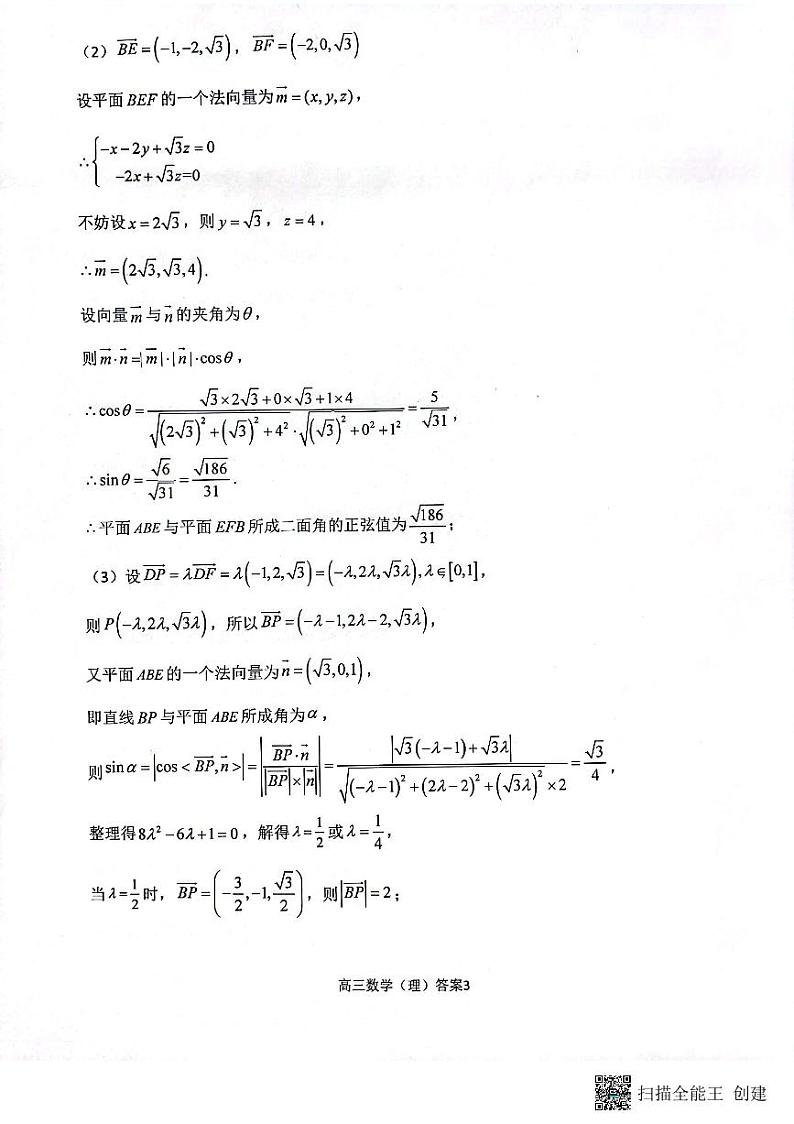 （2）$\overrightarrow{BE}=(-1,-2,\sqrt{3})$，$\overrightarrow{BF}=(-2,0,\sqrt{3})$
设平面BEF的一个法向量为$\vec{m}=(x,y,z)$，
∴$\begin{cases}-x-2y+\sqrt{3}z=0\\-2x+\sqrt{3}z=0\end{cases}$
不妨设$x=2\sqrt{3}$，则$y=\sqrt{3}$，$z=4$，
∴$\vec{m}=(2\sqrt{3},\sqrt{3},4)$.
设向量$\vec{m}$与$\vec{n}$的夹角为θ，
则$\vec{m}\cdot\vec{n}=|\vec{m}|\cdot|\vec{n}|\cdot\cos\theta$，
∴$\cos\theta=\frac{\sqrt{3}\times2\sqrt{3}+0\times\sqrt{3}+1\times4}{\sqrt{(2\sqrt{3})^2+(\sqrt{3})^2+4^2}\cdot\sqrt{(\sqrt{3})^2+0^2+1^2}}=\frac{5}{\sqrt{31}}$，
∴$\sin\theta=\frac{\sqrt{6}}{\sqrt{31}}=\frac{\sqrt{186}}{31}$.
∴平面ABE与平面EFB所成二面角的正弦值为$\frac{\sqrt{186}}{31}$；
（3）设$\overrightarrow{DP}=\lambda\overrightarrow{DF}=\lambda(-1,2,\sqrt{3})=(-\lambda,2\lambda,\sqrt{3}\lambda),\lambda\in[0,1]$，
则$P(-\lambda,2\lambda,\sqrt{3}\lambda)$，所以$\overrightarrow{BP}=(-\lambda-1,2\lambda-2,\sqrt{3}\lambda)$，
又平面ABE的一个法向量为$\vec{n}=(\sqrt{3},0,1)$，
即直线BP与平面ABE所成角为α，
则$\sin\alpha=|\cos<\overrightarrow{BP},\vec{n}>|=\left|\frac{\overrightarrow{BP}\cdot\vec{n}}{|\overrightarrow{BP}|\times|\vec{n}|}\right|=\frac{|\sqrt{3}(-\lambda-1)+\sqrt{3}\lambda|}{\sqrt{(-\lambda-1)^2+(2\lambda-2)^2+(\sqrt{3}\lambda)^2}\times2}=\frac{\sqrt{3}}{4}$，
整理得$8\lambda^2-6\lambda+1=0$，解得$\lambda=\frac{1}{2}$或$\lambda=\frac{1}{4}$，
当$\lambda=\frac{1}{2}$时，$\overrightarrow{BP}=\left(-\frac{3}{2},-1,\frac{\sqrt{3}}{2}\right)$，则$|\overrightarrow{BP}|=2$；
高三数学（理）答案3
扫描全能王 创建